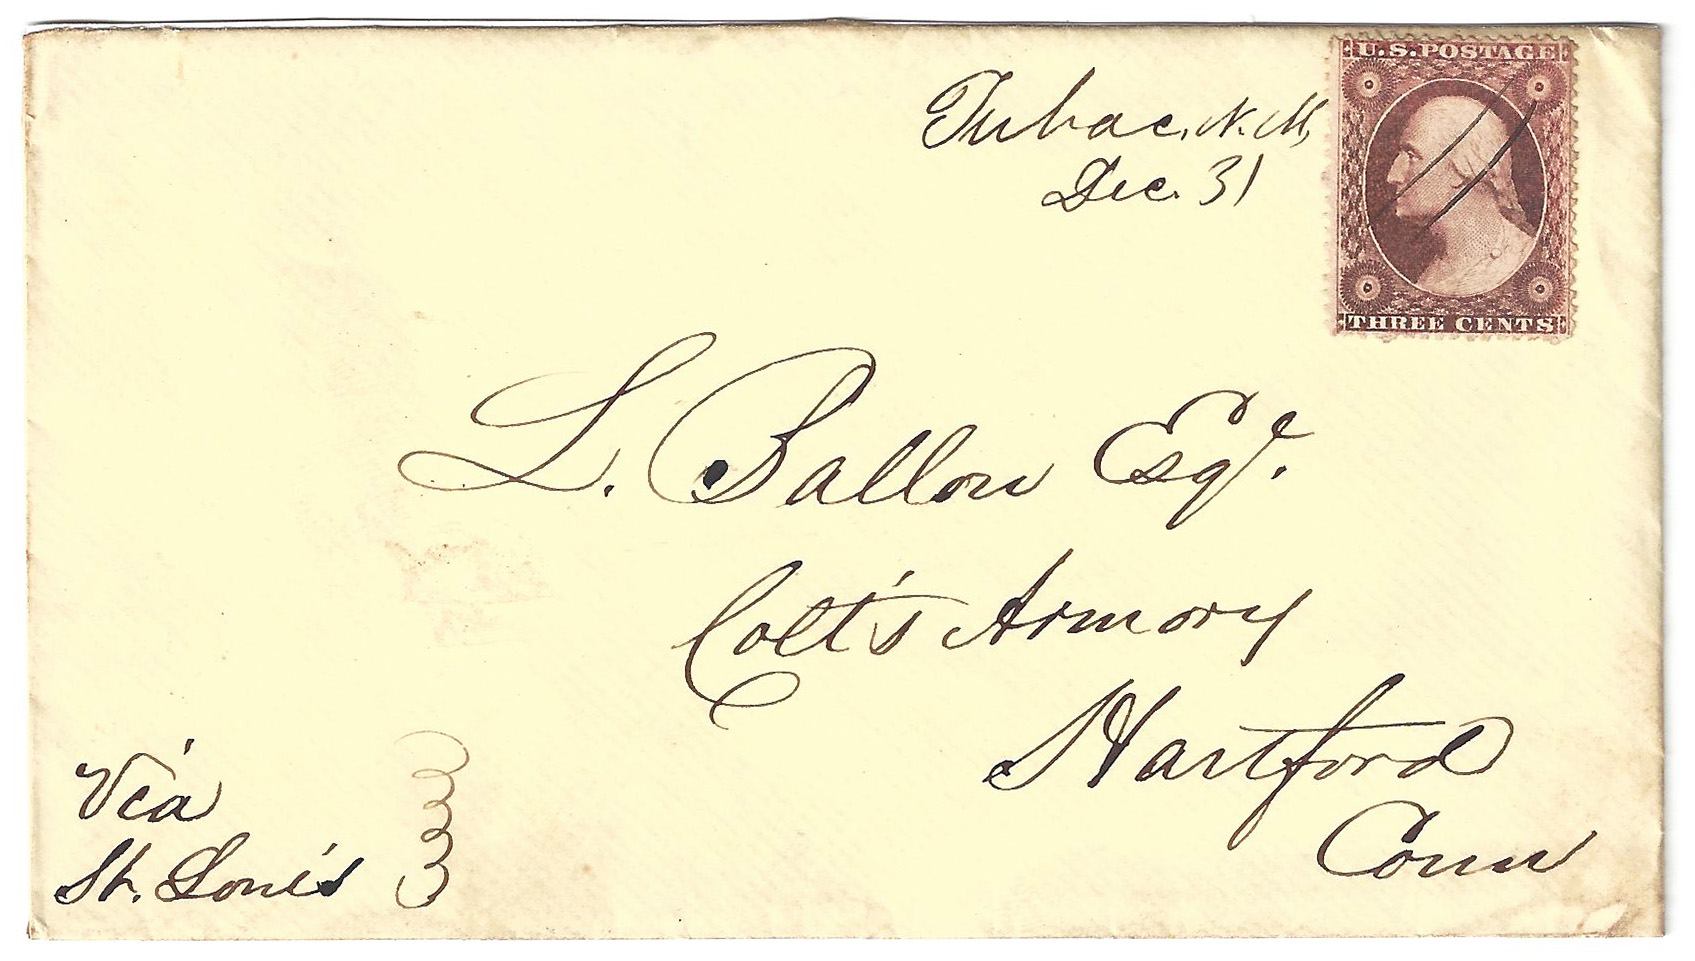 Tubac, N. M,
Dec. 31
U.S. POSTAGE
THREE CENTS
L. Ballou Esqr.
Colt's Armory
Hartford
Conn
Via
St. Louis